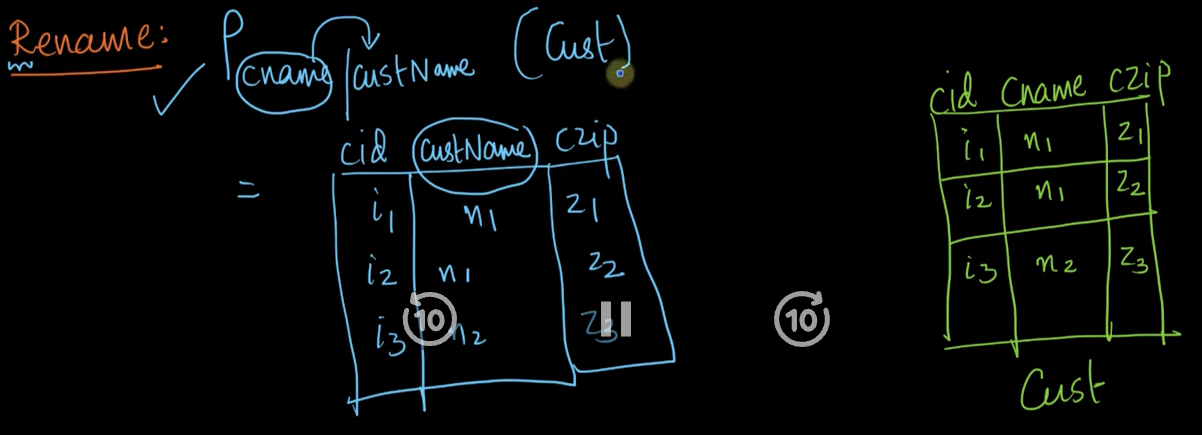 Rename: ρ cname|custName (Cust)
= cid custName czip
i1 n1 z1
i2 n1 z2
i3 n2 z3
10 10
cid cname czip
i1 n1 z1
i2 n1 z2
i3 n2 z3
Cust